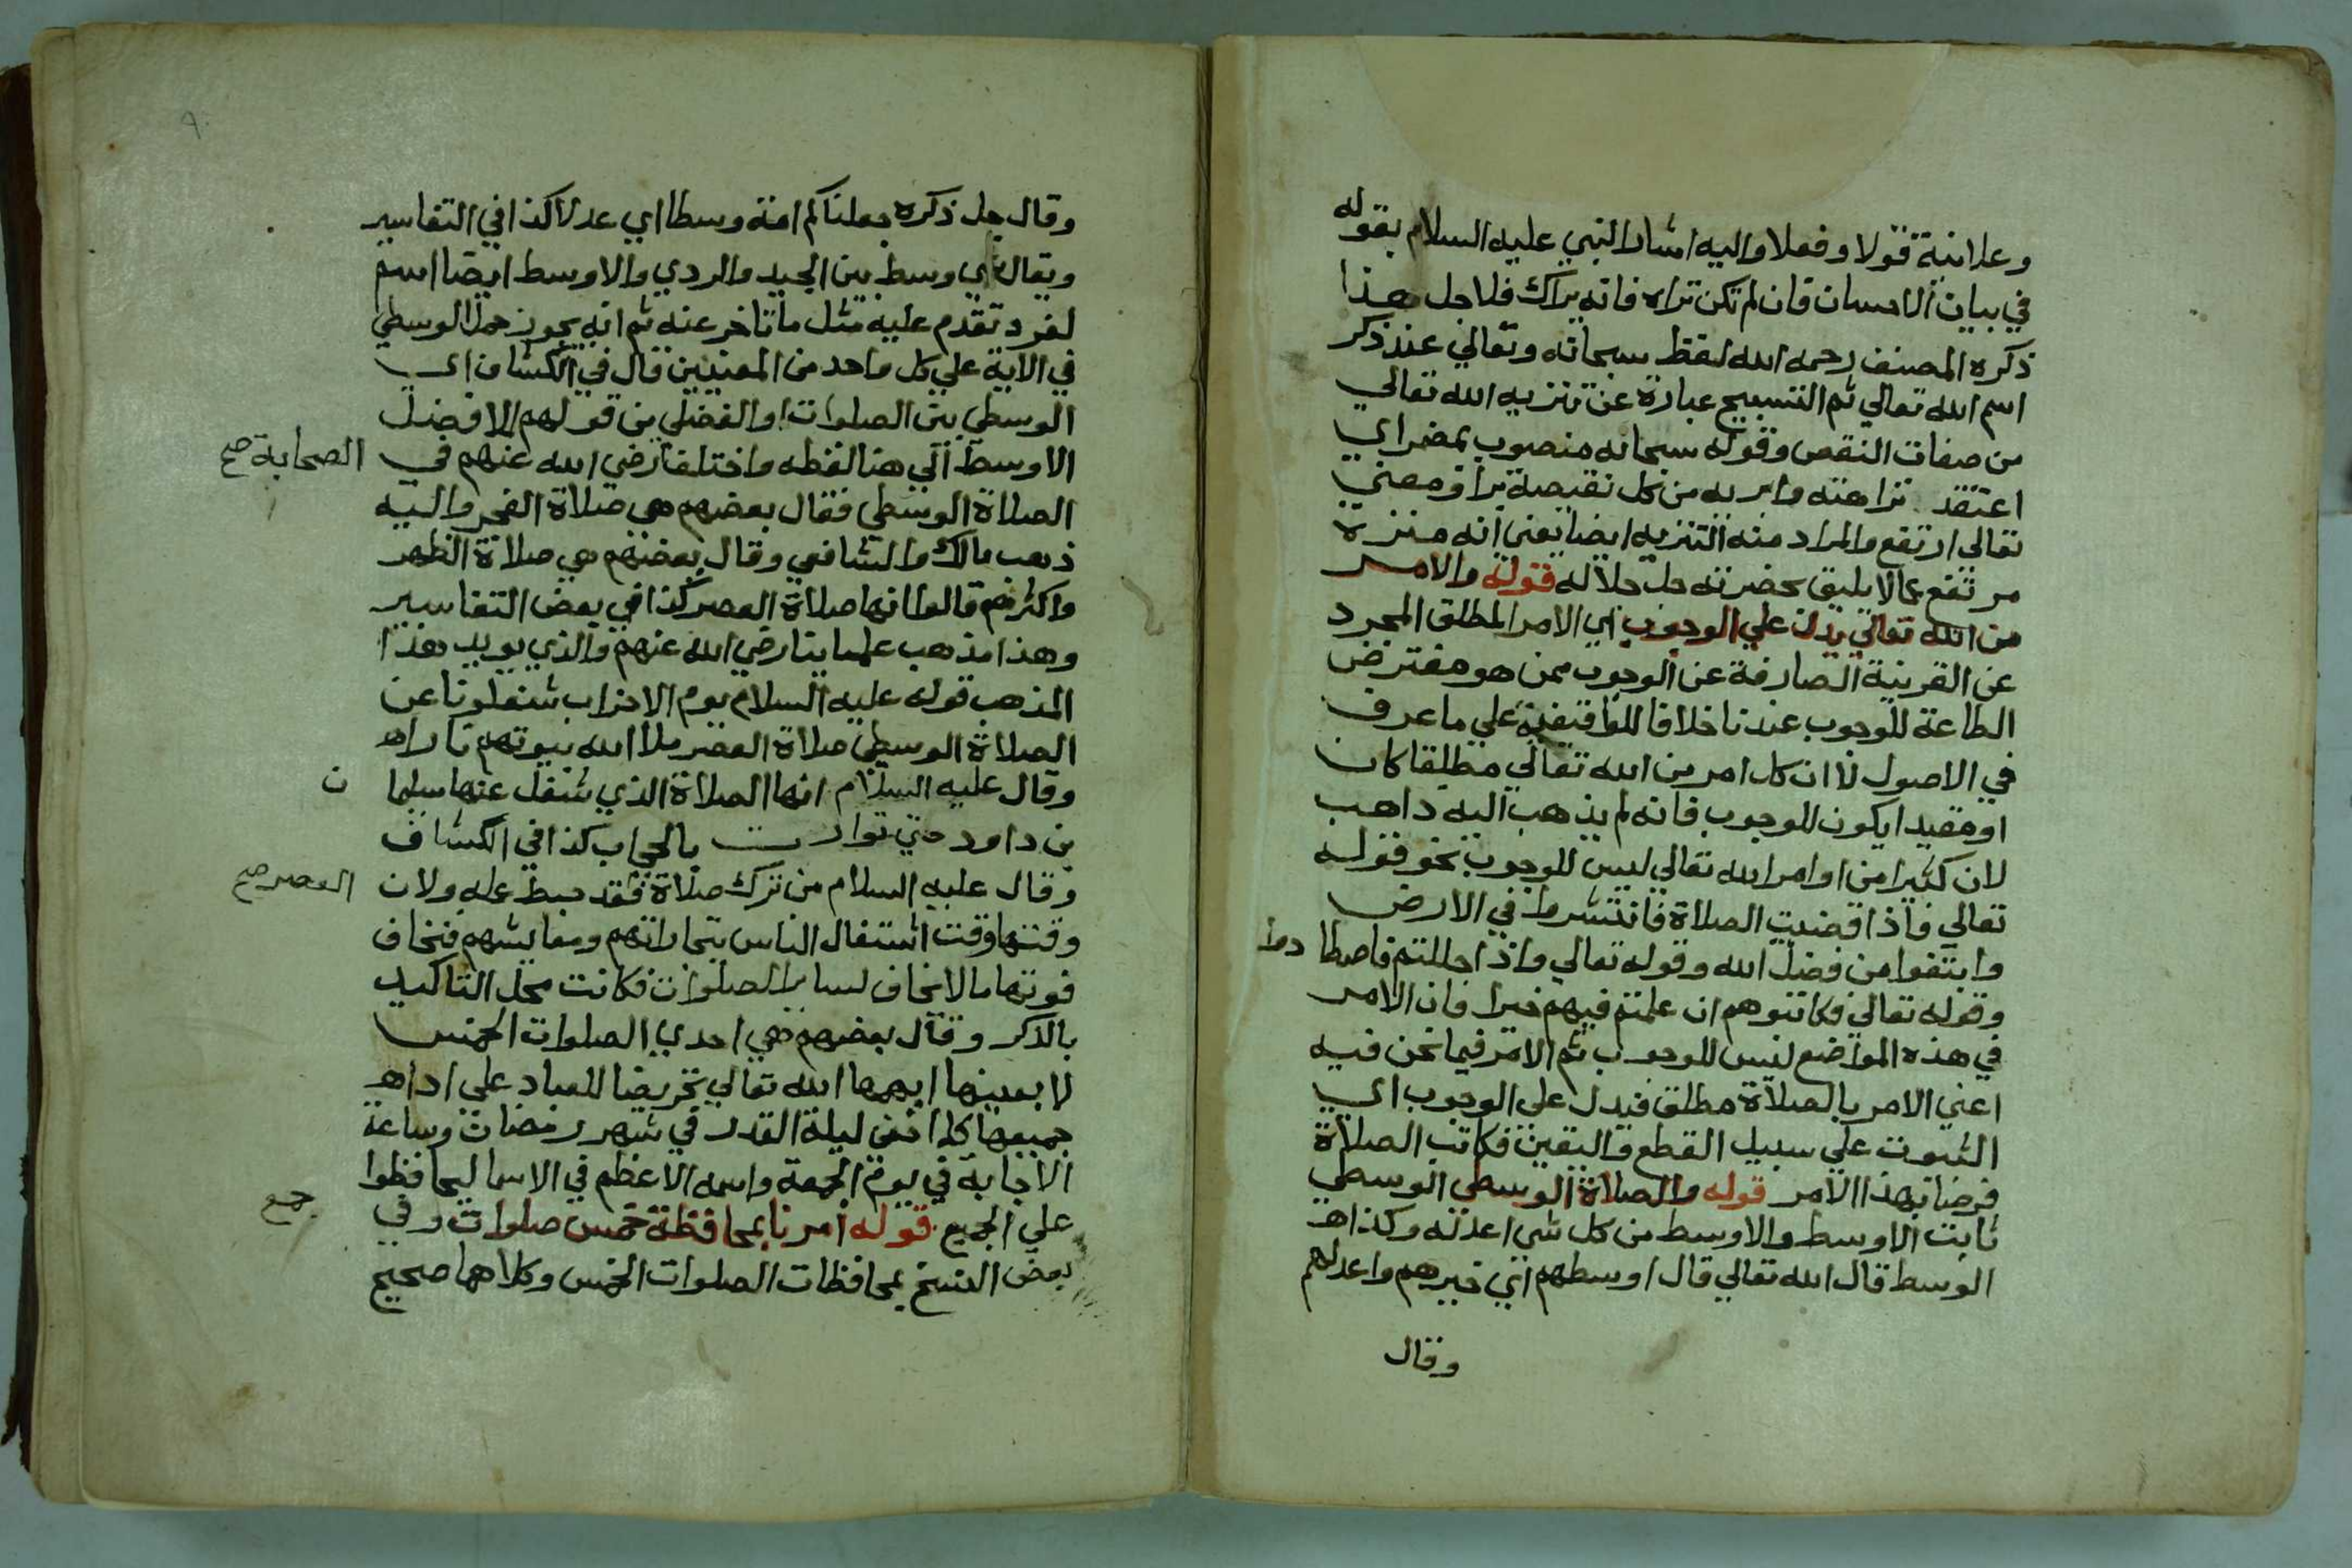 وعلانية قولا وفعلا واليه اشار النبي عليه السلام بقوله
في بيان الاحسان فان لم تكن تراه فانه يراك فلاجل هذا
ذكره المصنف رحمه الله لفظ سبحانه وتعالي عند ذكر
اسم الله تعالي ثم التسبيح عبارة عن تنزيه الله تعالي
من صفات النقص وقوله سبحانه منصوب بمضمر اي
اعتقد نزاهته من كل نقيصة ومعني
تعالي ارتفع والمراد منه التنزيه ايضا يعني انه منزه
مرتفع عما لا يليق بحضرته جل جلاله قوله والامر
من الله تعالي يدل علي الوجوب اي الامر المطلق المجرد
عن القرينة الصارفة عن الوجوب ممن هو مفترض
الطاعة للوجوب عندنا خلافا للواقفية علي ما عرف
في الاصول لا ان كل امر من الله تعالي مطلقا كان
او مقيدا يكون للوجوب فانه لم يذهب اليه ذاهب
لان كثيرا من اوامر الله تعالي ليس للوجوب نحو قوله
تعالي فاذا قضيت الصلاة فانتشروا في الارض
وابتغوا من فضل الله وقوله تعالي واذا حللتم فاصطا دوا
وقوله تعالي فكاتبوهم ان علمتم فيهم خيرا فان الامر
في هذه المواضع ليس للوجوب ثم الامر فيما نحن فيه
اعني الامر بالصلاة مطلق فيدل علي الوجوب اي
الثبوت علي سبيل القطع واليقين فكانت الصلاة
فرضا بهذا الامر قوله والصلاة الوسطي الوسطي
تانيث الاوسط والاوسط من كل شي اعدله وكذا
الوسط قال الله تعالي قال اوسطهم اي خيرهم واعدلهم
وقال
٩٠
وقال جل ذكره جعلناكم امة وسطا اي عدلا كذا في التفاسير
ويقال شي وسط بين الجيد والردي والاوسط ايضا اسم
لفرد تقدم عليه مثل ما تاخر عنه ثم انه يجوز حمل الوسطي
في الاية علي كل واحد من المعنيين قال في الكشاف اي
الوسطي بين الصلوات او الفضلي من قولهم للافضل
الاوسط الي هنا لفظه واختلف رضي الله عنهم في الصحابة صح
الصلاة الوسطي فقال بعضهم هي صلاة الفجر واليه
ذهب مالك والشافعي وقال بعضهم هي صلاة الظهر
واكثرهم قالوا انها صلاة العصر كذا في بعض التفاسير
وهذا مذهب علماينا رضي الله عنهم والذي يويد هذا
المذهب قوله عليه السلام يوم الاحزاب شغلونا عن
الصلاة الوسطي صلاة العصر ملا الله بيوتهم نارا
وقال عليه السلام انها الصلاة الذي شغل عنها سليما ن
بن داود حتي توارت بالحجاب كذا في الكشاف
وقال عليه السلام من ترك صلاة فقد حبط عمله ولان العصر صح
وقتها وقت اشتغال الناس بتجاراتهم ومعايشهم فيخاف
فوتها ما لا يخاف لساير الصلوات فكانت محل التاكيد
بالذكر وقال بعضهم هي احدي الصلوات الخمس
لا بعينها ابهمها الله تعالي تحريضا للعباد علي اداء
جميعها كما اخفي ليلة القدر في شهر رمضان وساعة
الاجابة في يوم الجمعة واسمه الاعظم في الاسما ليحافظوا
علي الجميع قوله امرنا بمحافظة خمس صلوات وفي جمع
بعض النسخ بمحافظات الصلوات الخمس وكلاهما صحيح